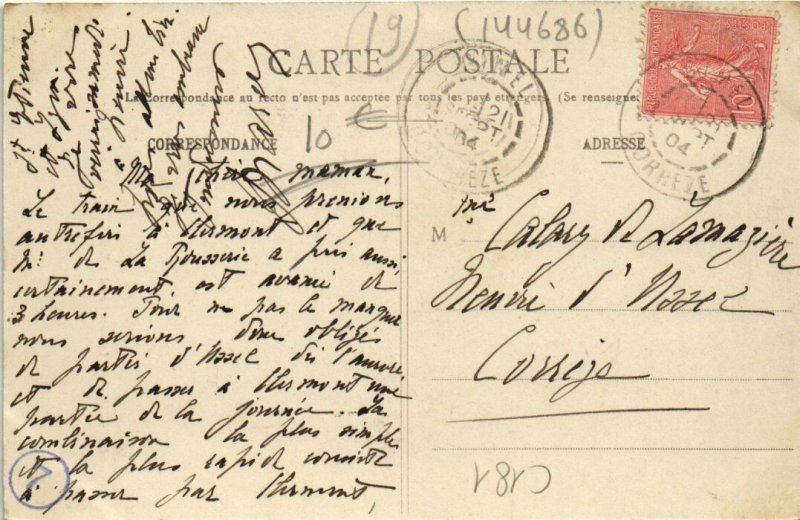 (19)
(144686)
CARTE POSTALE
La Correspondance au recto n'est pas acceptée par tous les pays étrangers. (Se renseigner
CORRESPONDANCE
10 €
ADRESSE
USSEL
21
SEPT
04
CORRÈZE
04
CORRÈZE
10
Ma chère maman,
Le train que nous prenions
autrefois à Clermont et que
Mr de La Rousserie a pris aussi
certainement est avancé de
3 heures. Pour ne pas le manquer
nous serions donc obligés
de partir d'Ussel dès l'aurore
et de passer à Clermont une
partie de la journée. La
combinaison la plus simple
et la plus rapide consiste
à passer par Clermont,
St Etienne
et Lyon
M
Calary de Lamazière
d'Ussel
Corrèze
C181